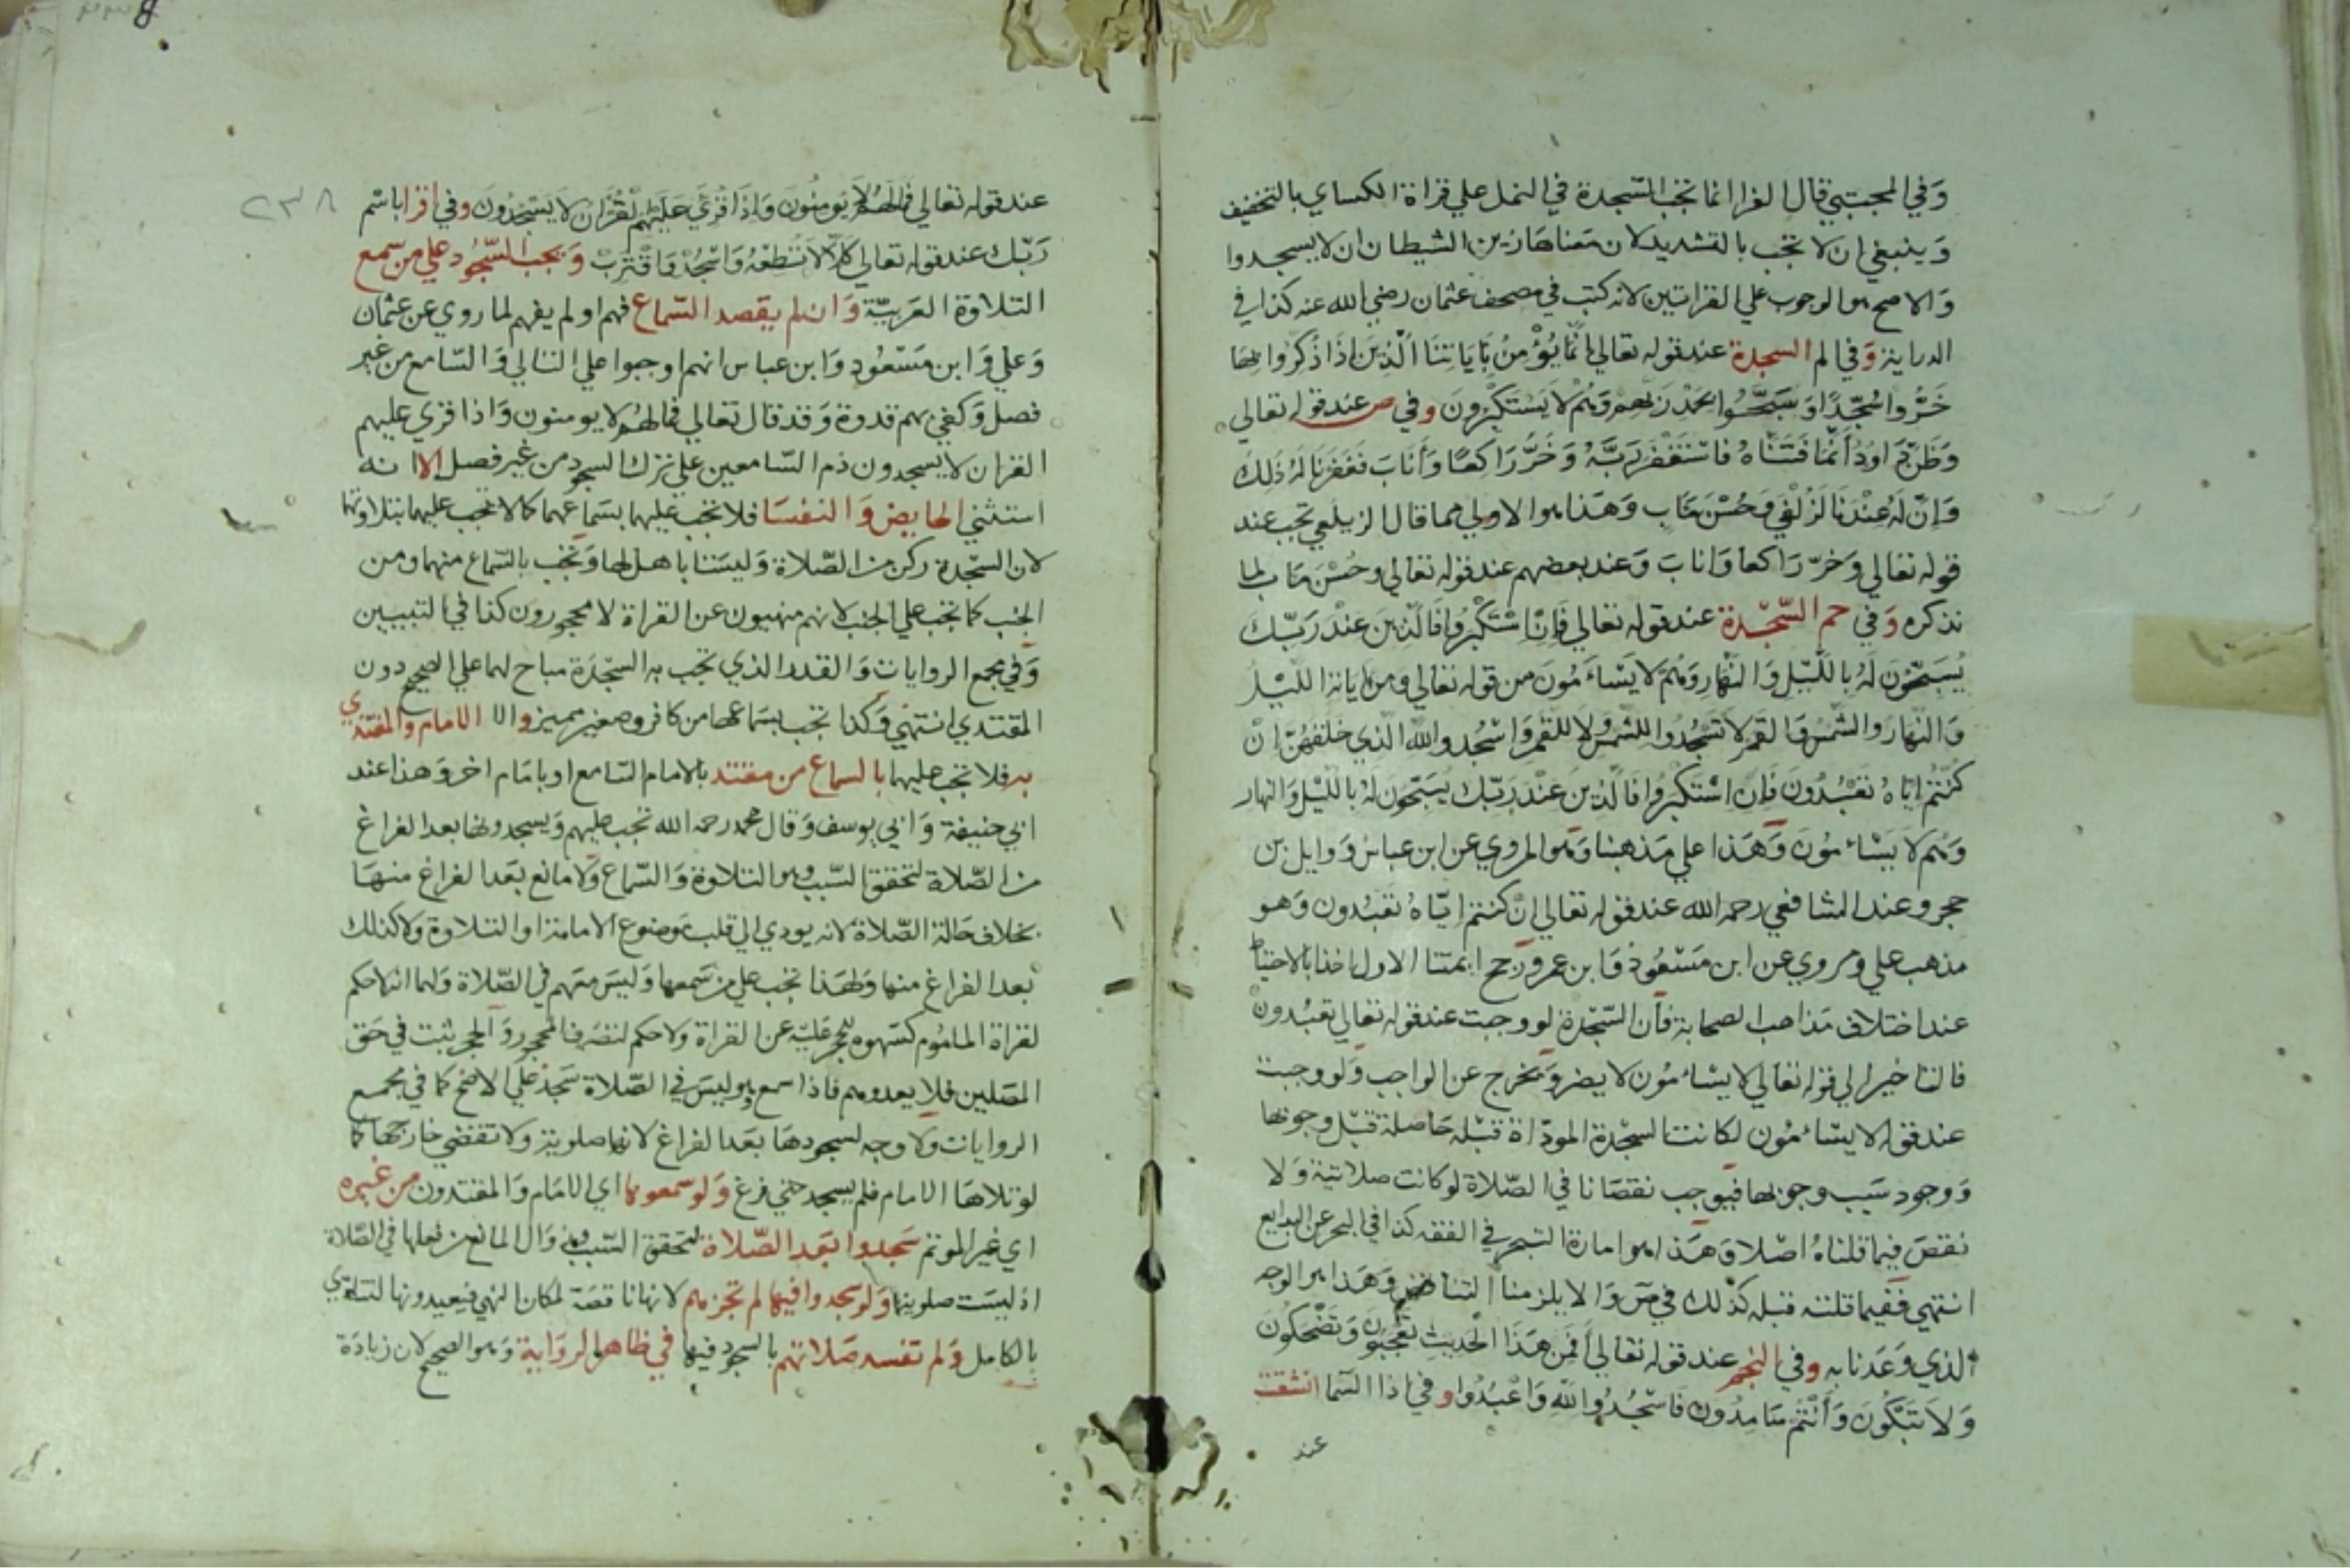 وفي المجتبى قال الفرا انما تجب السجدة في النمل علي قراة الكساي بالتخفيف
وينبغي ان لا تجب بالتشديد لان معناها زين الشيطان ان لا يسجدوا
والاصح هو الوجوب علي القراتين لانه كتب في مصحف عثمان رضي الله عنه كذا في
الدراية وفي الم السجدة عند قوله تعالي انما يؤمن باياتنا الذين اذا ذكروا بها
خروا سجدا وسبحوا بحمد ربهم وهم لا يستكبرون وفي ص عند قوله تعالي
وظن داود انما فتناه فاستغفر ربه وخر راكعا وأناب فغفرنا له ذلك
وإن له عندنا لزلفي وحسن مآب وهذا هو الاولي مما قال الزيلعي تجب عند
قوله تعالي وخر راكعا واناب وعند بعضهم عند قوله تعالي وحسن مآب لما
نذكره وفي حم السجدة عند قوله تعالي فإن استكبروا فالذين عند ربك
يسبحون له بالليل والنهار وهم لا يسأمون من قوله تعالي ومن اياته الليل
والنهار والشمس والقمر لا تسجدوا للشمس ولا للقمر واسجدوا لله الذي خلقهن ان
كنتم اياه تعبدون فإن استكبروا فالذين عند ربك يسبحون له بالليل والنهار
وهم لا يسأمون وهذا علي مذهبنا وهو المروي عن ابن عباس ووايل بن
حجر وعند الشافعي رحمه الله عند قوله تعالي ان كنتم اياه تعبدون وهو
مذهب علي ومروي عن ابن مسعود وابن عمر ورجح ايمتنا الاول اخذا بالاحتياط
عند اختلاف مذاهب الصحابة فان السجدة لو وجبت عند قوله تعالي تعبدون
فالتاخير الي قوله تعالي لا يسأمون لا يضر ويخرج عن الواجب ولو وجبت
عند قوله لا يسأمون لكانت السجدة المؤداة قبله حاصلة قبل وجوبها
ووجود سبب وجوبها فيوجب نقصانا في الصلاة لو كانت صلاتية ولا
نقص فيما قلناه اصلا وهذا هو امارة التبحر في الفقه كذا في البحر عن البدايع
انتهي ففيما قلته قبله كذلك في ص والا يلزمنا التناقض وهذا هو الوجه
الذي وعدنا به وفي النجم عند قوله تعالي أفمن هذا الحديث تعجبون وتضحكون
ولا تبكون وأنتم سامدون فاسجدوا لله واعبدوا وفي اذا السما انشقت
عند
٢٣٨
عند قوله تعالي فما لهم لا يومنون واذا قري عليهم القران لا يسجدون وفي اقرا باسم
ربك عند قوله تعالي كلا لا تطعه واسجد واقترب ويجب السجود علي من سمع
التلاوة العربية وان لم يقصد السماع فهم او لم يفهم لما روي عن عثمان
وعلي وابن مسعود وابن عباس انهم اوجبوا علي التالي والسامع من غير
فصل وكفي بهم قدوة وقد قال تعالي فما لهم لا يومنون واذا قري عليهم
القران لا يسجدون ذم السامعين علي ترك السجود من غير فصل الا انه
استثني الحايض والنفسا فلا تجب عليهما بسماعهما كما لا تجب عليهما بتلاوتهما
لان السجدة ركن من الصلاة وليستا باهل لها وتجب بالسماع منهما ومن
الجنب كما تجب علي الجنب لانهم منهيون عن القراة لا محجورون كذا في التبيين
وفي مجمع الروايات والقدر الذي تجب به السجدة مباح لهما علي الصحيح دون
المقتدي انتهي وكذا تجب بسماعها من كافر وصغير مميز والا الامام والمقتدي
به فلا تجب عليهما بالسماع من مقتد بالامام السامع او بامام اخر وهذا عند
ابي حنيفة وابي يوسف وقال محمد رحمه الله تجب عليهم ويسجدونها بعد الفراغ
من الصلاة لتحقق السبب وهو التلاوة والسماع ولا مانع بعد الفراغ منها
بخلاف حالة الصلاة لانه يودي الي قلب موضوع الامامة او التلاوة ولا كذلك
بعد الفراغ منها ولهذا تجب علي من سمعها وليس معهم في الصلاة ولهما انه لا حكم
لقراة الماموم كسهوه للحجر عليه عن القراة ولا حكم لتصرف المحجور والحجر يثبت في حق
المصلين فلا يعدوهم فاذا سمع وليس في الصلاة سجد علي الاصح كما في مجمع
الروايات ولا وجه لسجودها بعد الفراغ لانها صلوية ولا تقضي خارجها كما
لو تلاها الامام فلم يسجد حتي فرغ ولو سمعوها اي الامام والمقتدون من غيره
اي غير الموتم سجدوا بعد الصلاة لتحقق السبب وزوال المانع من فعلها في الصلاة
اذ ليست صلوية ولو سجدوا فيها لم تجزهم لانها ناقصة لمكان النهي فيعيدونها لتتادي
بالكامل ولم تفسد صلاتهم بالسجود فيها في ظاهر الرواية وهو الصحيح لان زيادة